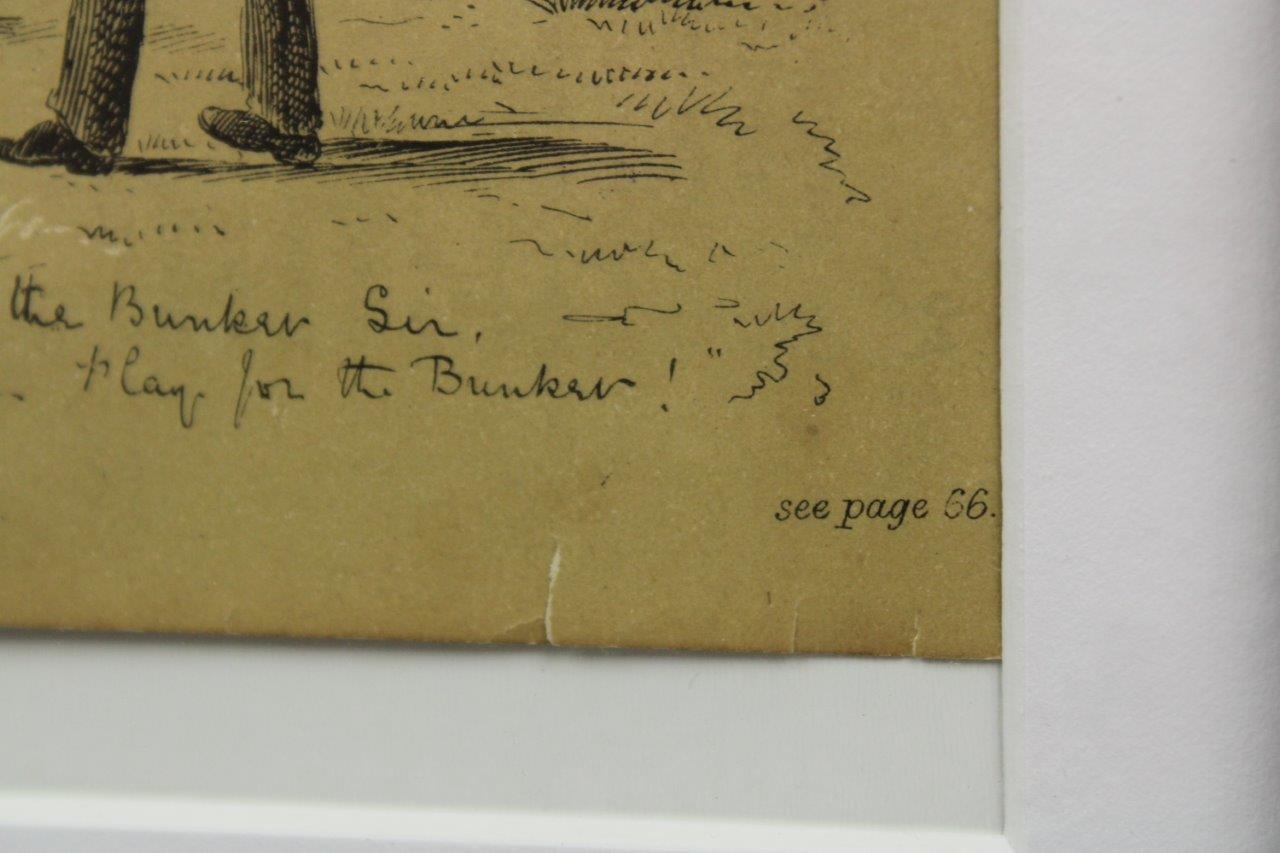 the Bunker Sir,
. Play for the Bunker! "
see page 66.